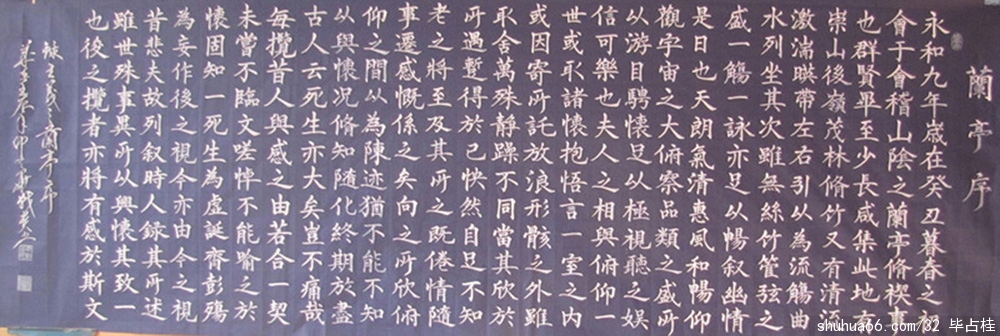 蘭亭序
永和九年歲在癸丑暮春之初
會于會稽山陰之蘭亭脩禊事
也群賢畢至少長咸集此地有
崇山後嶺茂林脩竹又有清流
激湍暎帶左右引以為流觴曲
水列坐其次雖無絲竹管弦之
盛一觴一詠亦足以暢叙幽情
是日也天朗氣清惠風和暢仰
觀宇宙之大俯察品類之盛所
以游目騁懷足以極視聽之娛
信可樂也夫人之相與俯仰一
世或取諸懷抱悟言一室之內
或因寄所託放浪形骸之外雖
取舍萬殊靜躁不同當其欣於
所遇暫得於己怏然自足不知
老之將至及其所之既倦情隨
事遷感慨係之矣向之所欣俯
仰之間以為陳迹猶不能不知
以興懷況脩知隨化終期於盡
古人云死生亦大矣豈不痛哉
每攬昔人興感之由若合一契
未嘗不臨文嗟悼不能喻之於
懷固知一死生為虛誕齊彭殤
為妄作後之視今亦由今之視
昔悲夫故列叙時人錄其所述
雖世殊事異所以興懷其致一
也後之攬者亦將有感於斯文
王羲之蘭亭序
shuhua66.com/32 毕占桂